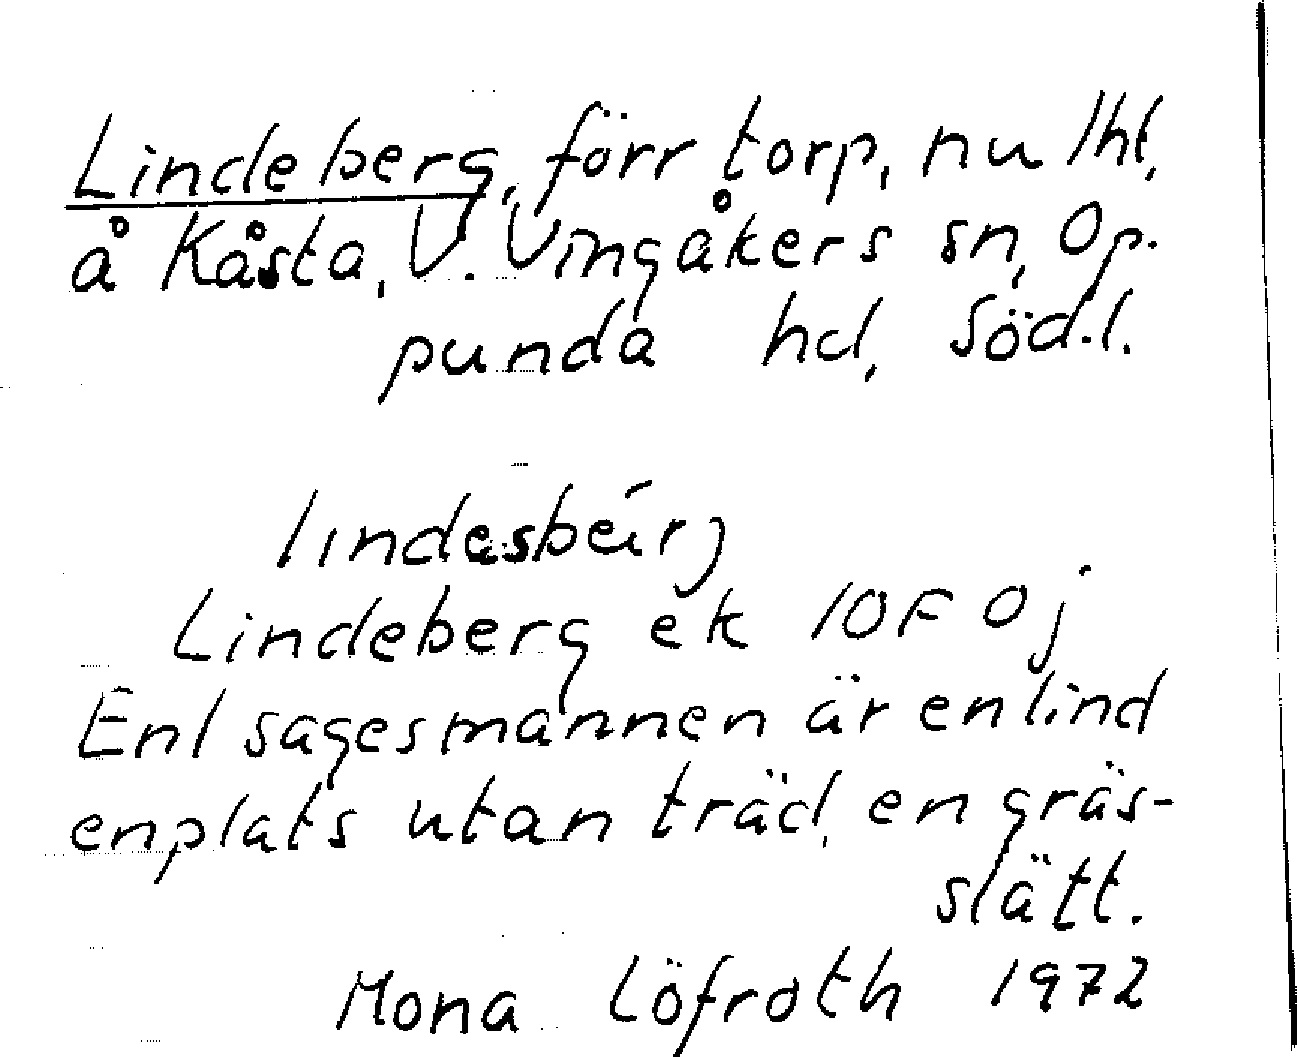 Lindeberg, förr torp, nu lht,
å Kåsta, V. Vingåkers sn, Op.
punda hd, Söd.l.
lındasbéırj
Lindeberg ek 10F 0j
Enl sagesmannen är en lind
en plats utan träd, en gräs-
slätt.
Mona Löfroth 1972